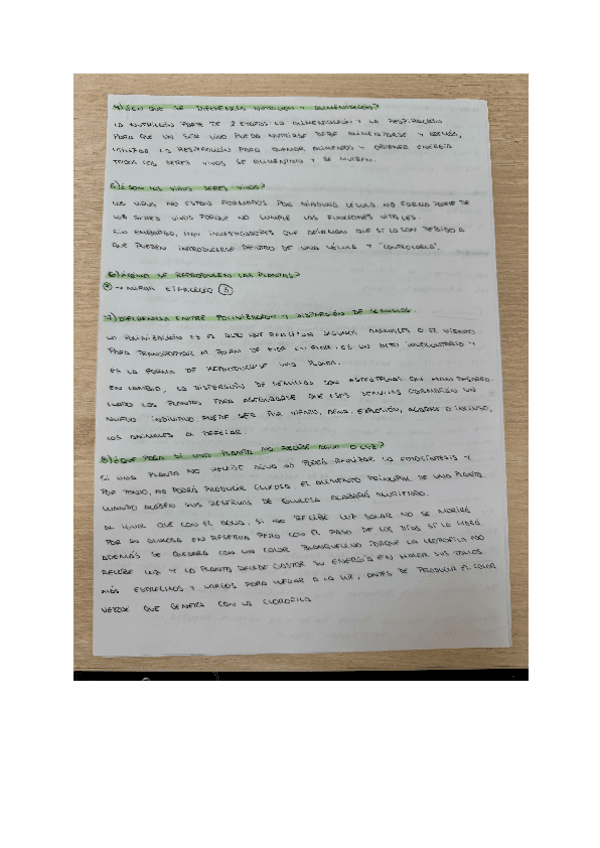 4) ¿EN QUE SE DIFERENCIA NUTRICIÓN Y ALIMENTACIÓN?
LA NUTRICIÓN PARTE DE 2 ETAPAS: LA ALIMENTACIÓN Y LA RESPIRACIÓN
PARA QUE UN SER VIVO PUEDA NUTRIRSE DEBE ALIMENTARSE Y ADEMÁS,
UTILIZAR LA RESPIRACIÓN PARA QUEMAR ALIMENTOS Y OBTENER ENERGÍA
TODOS LOS SERES VIVOS SE ALIMENTAN Y SE NUTREN.
¿SON LOS VIRUS SERES VIVOS?
LOS VIRUS NO ESTÁN FORMADOS POR NINGUNA CÉLULA. NO FORMA PARTE DE
LOS SERES VIVOS PORQUE NO CUMPLE LAS FUNCIONES VITALES.
SIN EMBARGO, HAY INVESTIGADORES QUE OPINAN QUE SI LO SON DEBIDO A
QUE PUEDEN INTRODUCIRSE DENTRO DE UNA CÉLULA Y "CONTROLARLA".
6) ¿CÓMO SE REPRODUCEN LAS PLANTAS?
→ MIRAR EJERCICIO 3
7) DIFERENCIA ENTRE POLINIZACIÓN Y DISPERSIÓN DE SEMILLAS.
LA POLINIZACIÓN ES EL ACTO QUE REALIZAN ALGUNOS ANIMALES O EL VIENTO
PARA TRANSPORTAR EL POLEN DE FLOR EN FLOR. ES UN ACTO INVOLUNTARIO Y
ES LA FORMA DE REPRODUCIRSE UNA PLANTA.
EN CAMBIO, LA DISPERSIÓN DE SEMILLAS SON ESTRATEGIAS QUE HAN DESARRO-
LLADO LAS PLANTAS PARA ASEGURARSE QUE ESAS SEMILLAS FORMARÁN UN
NUEVO INDIVIDUO. PUEDE SER POR VIENTO, AGUA, EXPLOSIÓN, AGARRE O INCLUSO,
LOS ANIMALES AL DEFECAR.
8) ¿QUE PASA SI UNA PLANTA NO RECIBE AGUA O LUZ?
SI UNA PLANTA NO RECIBE AGUA NO PODRÁ REALIZAR LA FOTOSÍNTESIS Y
POR TANTO, NO PODRÁ PRODUCIR GLUCOSA. EL ALIMENTO PRINCIPAL DE UNA PLANTA.
CUANDO ACABEN SUS RESERVAS DE GLUCOSA ACABARÁ MURIENDO.
AL IGUAL QUE CON EL AGUA, SI NO RECIBE LUZ SOLAR NO SE MORIRÁ
POR SU GLUCOSA EN RESERVA PERO CON EL PASO DE LOS DÍAS SI LO HARÁ
ADEMÁS SE QUEDARÁ CON UN COLOR BLANQUECINO PORQUE LA CLOROFILA NO
RECIBE LUZ Y LA PLANTA DECIDE GASTAR SU ENERGÍA EN HACER SUS TALLOS
MÁS ESTRECHOS Y LARGOS PARA LLEGAR A LA LUZ, ANTES DE PRODUCIR EL COLOR
VERDE QUE GENERA CON LA CLOROFILA.